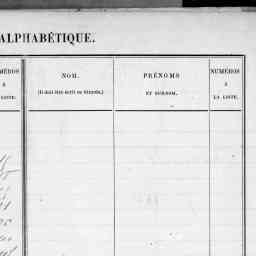 ALPHABÉTIQUE.
NUMÉROS
À
LA LISTE.
NOM.
(Il doit être écrit en bâtarde.)
PRÉNOMS
ET SURNOM.
NUMÉROS
À
LA LISTE.